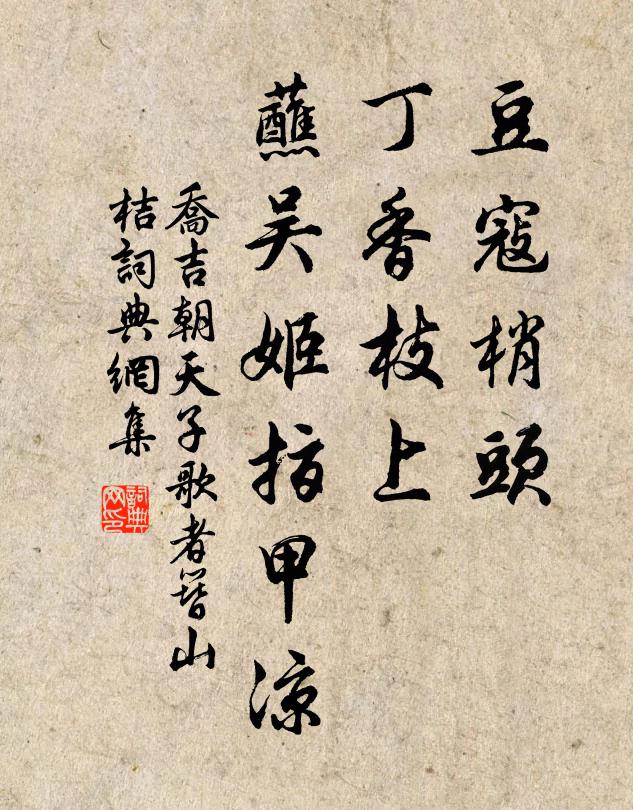 豆寇梢頭
丁香枝上
蘸吴姬指甲涼
喬吉朝天子歌者簪山
桔詞典網集
詞典網印